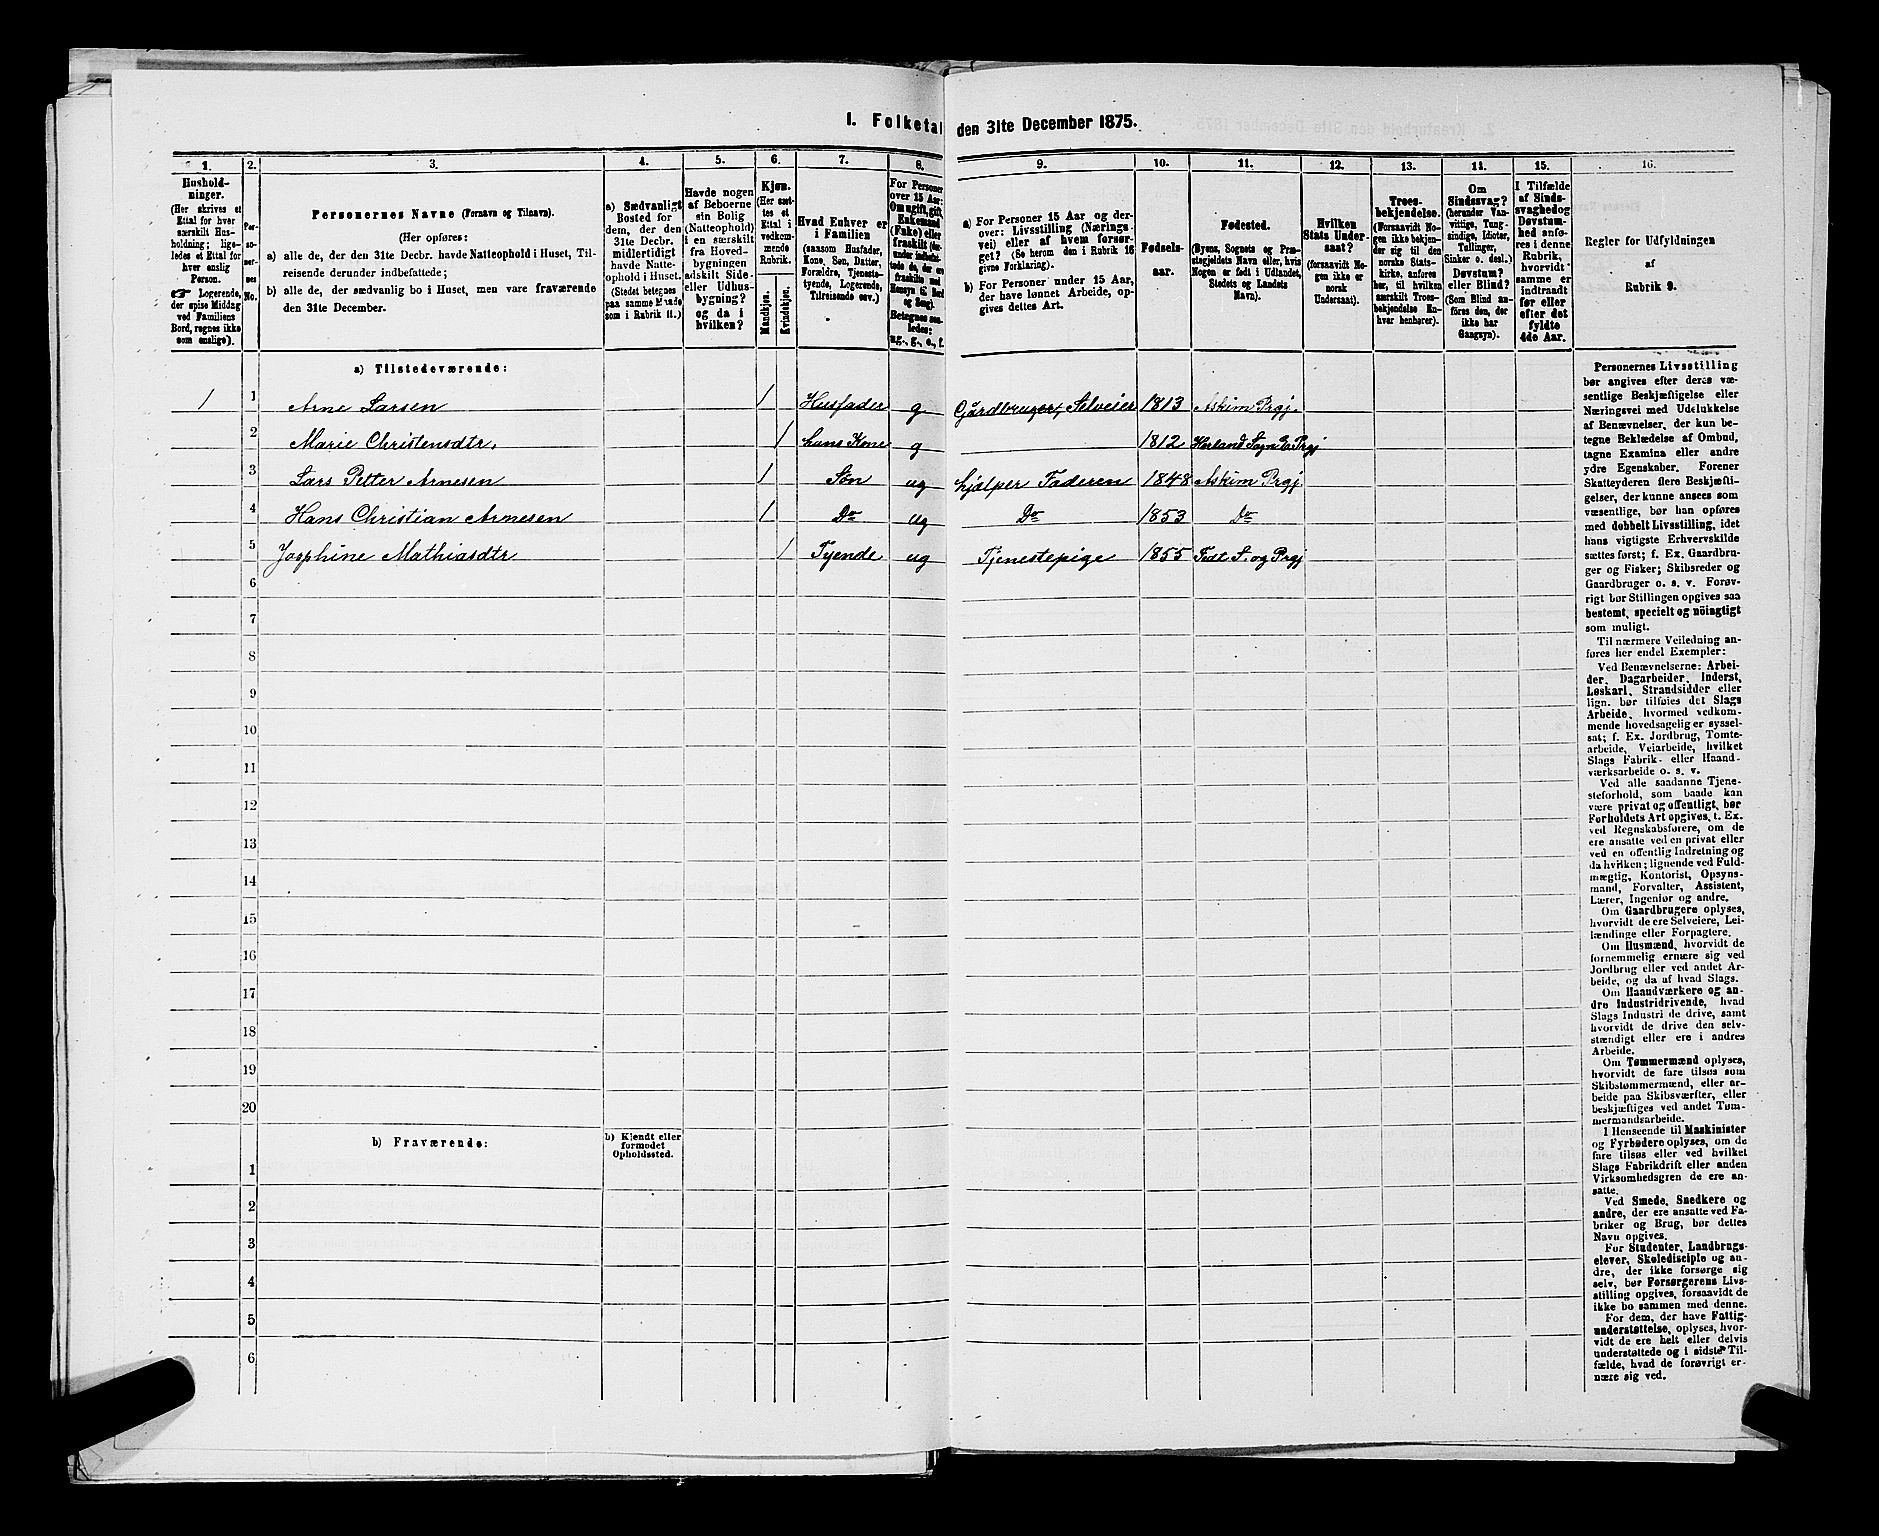 I. Folketal den 31te December 1875.
1. 2. 3. 4. 5. 6. 7. 8. 9. 10. 11. 12. 13. 14. 15. 16.
Hushold-
ninger.
(Her skrives et
Ettal for hver
særskilt Hus-
holdning; lige-
ledes et Ettal for
hver enslig
Person.
☞ Logerende,
der spise Middag
ved Familiens
Bord, regnes ikke
som enslige).
Per-
so-
ner-
nes
No.
Personernes Navne (Fornavn og Tilnavn).
(Her opføres:
a) alle de, der den 31te Decbr. havde Natteophold i Huset, Til-
reisende derunder indbefattede;
b) alle de, der sædvanlig bo i Huset, men vare fraværende
den 31te December.
a) Sædvanligt
Bosted for
dem, der den
31te Decbr.
midlertidigt
havde Natte-
ophold i Huset.
(Stedet betegnes
paa samme Maade
som i Rubrik 11.)
Havde nogen
af Beboerne
sin Bolig
(Natteophold)
i en særskilt
fra Hoved-
bygningen
adskilt Side-
eller Udhus-
bygning?
og da i
hvilken?
Kjøn.
(Her sæt-
tes et
Ettal i
vedkom-
mende
Rubrik.
Mandkjøn.
Kvindekjøn.
Hvad Enhver er
i Familien
(saasom Husfader,
Kone, Søn, Datter,
Forældre, Tjeneste-
tyende, Logerende,
Tilreisende osv.)
For Personer
over 15 Aar:
Om ugift, gift,
Enkemand
(Enke) eller
fraskilt
og Seng).
Betegnes saa-
ledes:
ug., g., e., f.
a) For Personer 15 Aar og der-
over: Livsstilling (Nærings-
vei) eller af hvem forsør-
get? (Se herom den i Rubrik 16
givne Forklaring).
b) For Personer under 15 Aar,
der have lønnet Arbeide, op-
gives dettes Art.
Fødsels-
aar.
Fødested.
(Byens, Sognets og Præ-
stegjeldets Navn eller, hvis
Nogen er født i Udlandet,
Stedets og Landets
Navn).
Hvilken
Stats Under-
saat?
(forsaavidt No-
gen ikke er
norsk
Undersaat).
Troes-
bekjendelse.
(Forsaavidt No-
gen ikke bekjen-
der sig til den
norske Stats-
kirke, anføres
her, til hvilken
særskilt Troes-
bekjendelse En-
hver henhører).
Om
Sindssvag?
(herunder Van-
vittige, Tung-
sindige, Idioter,
Tullinger,
Sinker o. desl.)
Døvstum?
eller Blind?
(Som Blind an-
føres den, der
ikke har
Gangsyn).
I Tilfælde
af Sinds-
svaghed og
Døvstum-
hed anfø-
res i denne
Rubrik,
hvorvidt
samme er
indtraadt
før eller
efter det
fyldte
4de Aar.
Regler for Udfyldningen
af
Rubrik 9.
a) Tilstedeværende:
1 1 Arne Larsen 1 Husfader g Gårdbruger, Selveier 1813 Askim Prgj.
2 Marie Christensdtr. 1 hans Kone g 1812 Herland Sogn E. Prgj
3 Lars Petter Arnesen 1 Søn ug hjælper Faderen 1848 Askim Prgj.
4 Hans Christian Arnesen 1 Do ug Do 1853 Do
5 Josphine Mathiasdtr 1 Tyende ug Tjenestepige 1855 S. og Prgj
6
7
8
9
10
11
12
13
14
15
16
17
18
19
20
b) Fraværende:
b) Kjendt eller
formodet
Opholdssted.
1
2
3
4
5
6
Personernes Livsstilling
bør angives efter deres væ-
sentlige Beskjæftigelse eller
Næringsvei med Udelukkelse
af Benævnelser, der kun be-
tegne Beklædelse af Ombud,
tagne Examina eller andre
ydre Egenskaber. Forener
Skatteyderen flere Beskjæfti-
gelser, der kunne ansees som
væsentlige, bør han opføres
med dobbelt Livsstilling, idet
hans vigtigste Erhvervskilde
sættes først; f. Ex. Gaardbru-
ger og Fisker; Skibsreder og
Gaardbruger o. s. v. Forøv-
rigt bør Stillingen opgives saa
bestemt, specielt og nöiagtigt
som muligt.
Til nærmere Veiledning an-
føres her endel Exempler:
Ved Benævnelserne: Arbei-
der, Dagarbeider, Inderst,
Løskarl, Strandsidder eller
lign. bør tilføies det Slags
Arbeide, hvormed vedkom-
mende hovedsagelig er syssel-
sat; f. Ex. Jordbrug, Tomte-
arbeide, Veiarbeide, hvilket
Slags Fabrik- eller Haand-
værksarbeide o. s. v.
Ved alle saadanne Tjene-
steforhold, som baade kan
være privat og offentligt, bør
Forholdets Art opgives, t. Ex.
ved Regnskabsførere, om de
ere ansatte ved en privat eller
ved en offentlig Indretning og
da hvilken; lignende ved Fuld-
mægtig, Kontorist, Opsyns-
mand, Forvalter, Assistent,
Lærer, Ingeniør og andre.
Om Gaardbrugere oplyses,
hvorvidt de ere Selveiere, Lei-
lændinge eller Forpagtere.
Om Husmænd, hvorvidt de
fornemmelig ernære sig ved
Jordbrug eller ved andet Ar-
beide, og da af hvad Slags.
Om Haandværkere og an-
dre Industridrivende, hvad
Slags Industri de drive, samt
hvorvidt de drive den selv-
stændigt eller ere i andres
Arbeide.
Om Tømmermænd oplyses,
hvorvidt de fare tilsøs som
Skibstømmermænd, eller ar-
beide paa Skibsværfter, eller
beskjæftiges ved andet Tøm-
mermandsarbeide.
I Henseende til Maskinister
og Fyrbødere oplyses, om de
fare tilsøs eller ved hvilket
Slags Fabrikdrift eller anden
Virksomhedsgren de ere an-
satte.
Ved Smede, Snedkere og
andre, der ere ansatte ved Fa-
briker og Brug, bør dettes
Navn opgives.
For Studenter, Landbrugs-
elever, Skoledisciple og an-
dre, der ikke forsørge sig
selv, bør Forsørgerens Livs-
stilling opgives, forsaavidt de
ikke bo sammen med denne.
For dem, der have Fattig-
understøttelse, oplyses, hvor-
vidt de ere helt eller delvis
understøttede og i sidste Til-
fælde, hvad de forøvrigt er-
nære sig ved.